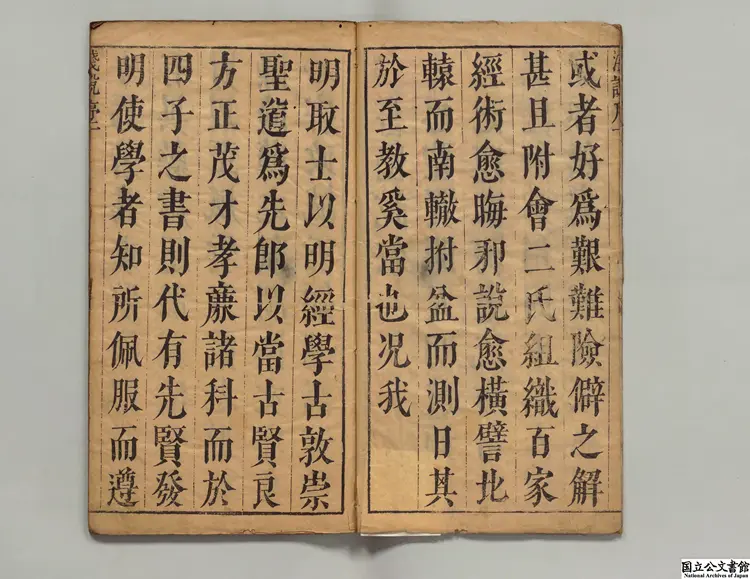 或者好爲艱難險僻之解
甚且附會二氏組織百家
經術愈晦邪説愈橫譬北
轅而南轍拊盆而測日其
於至教奚當也况我
明取士以明經學古敦崇
聖道爲先郎以當古賢良
方正茂才孝廉諸科而於
四子之書則代有先賢發
明使學者知所佩服而遵
淺說序
国立公文書館
National Archives of Japan